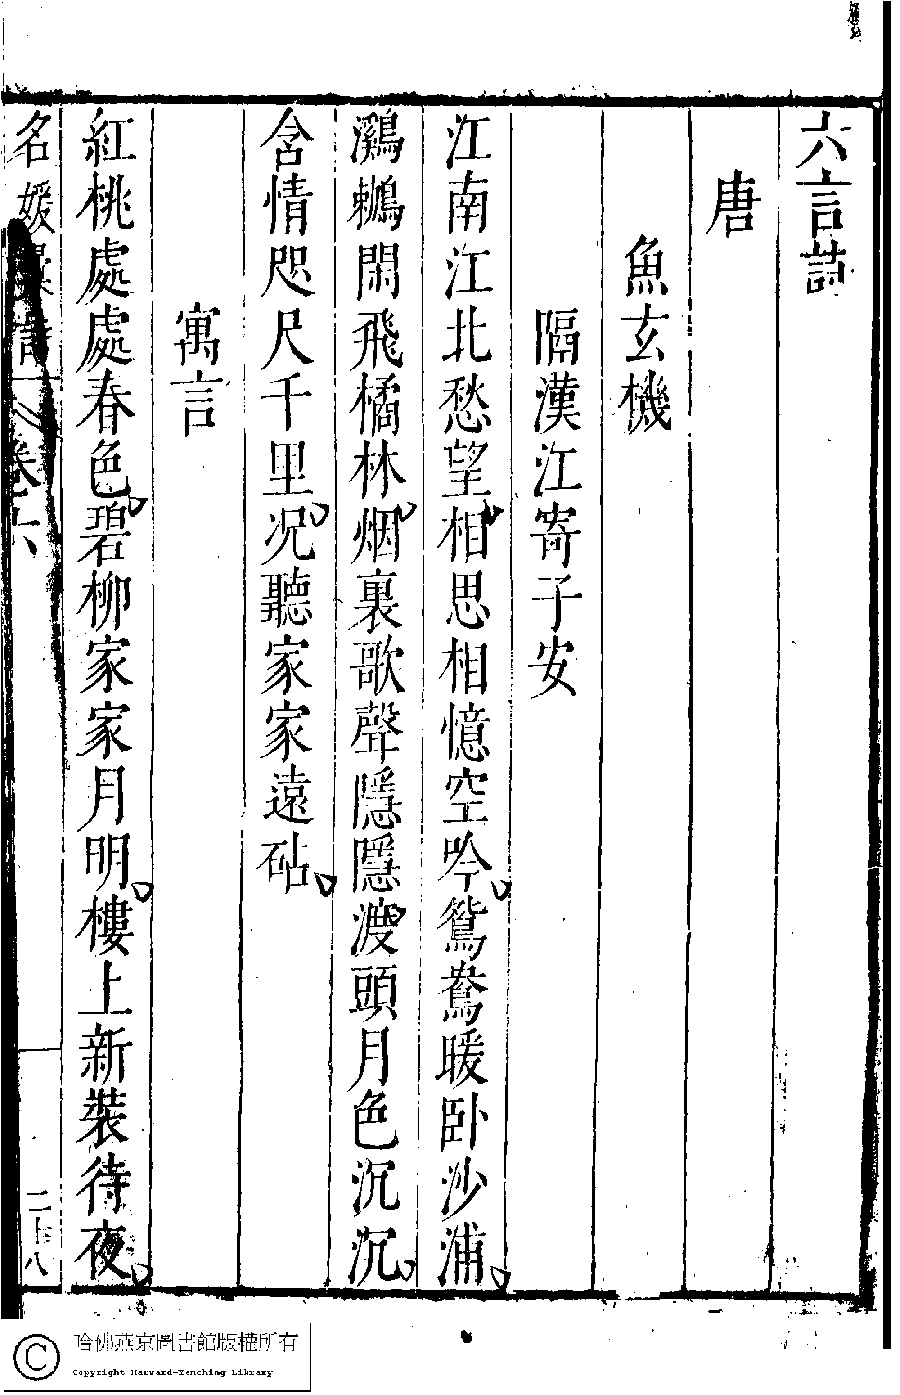 六言詩
唐
魚玄機
隔漢江寄子安
江南江北愁望相思相憶空吟鴛鴦暖卧沙浦
鸂鶒閒飛橘林烟裏歌聲隱隱渡頭月色沉沉
含情咫尺千里况聽家家遠砧
寓言
紅桃處處春色碧柳家家月明樓上新裝待夜
名媛
卷六
二十八
哈佛燕京圖書館版權所有
Copyright Harvard-Yenching Library